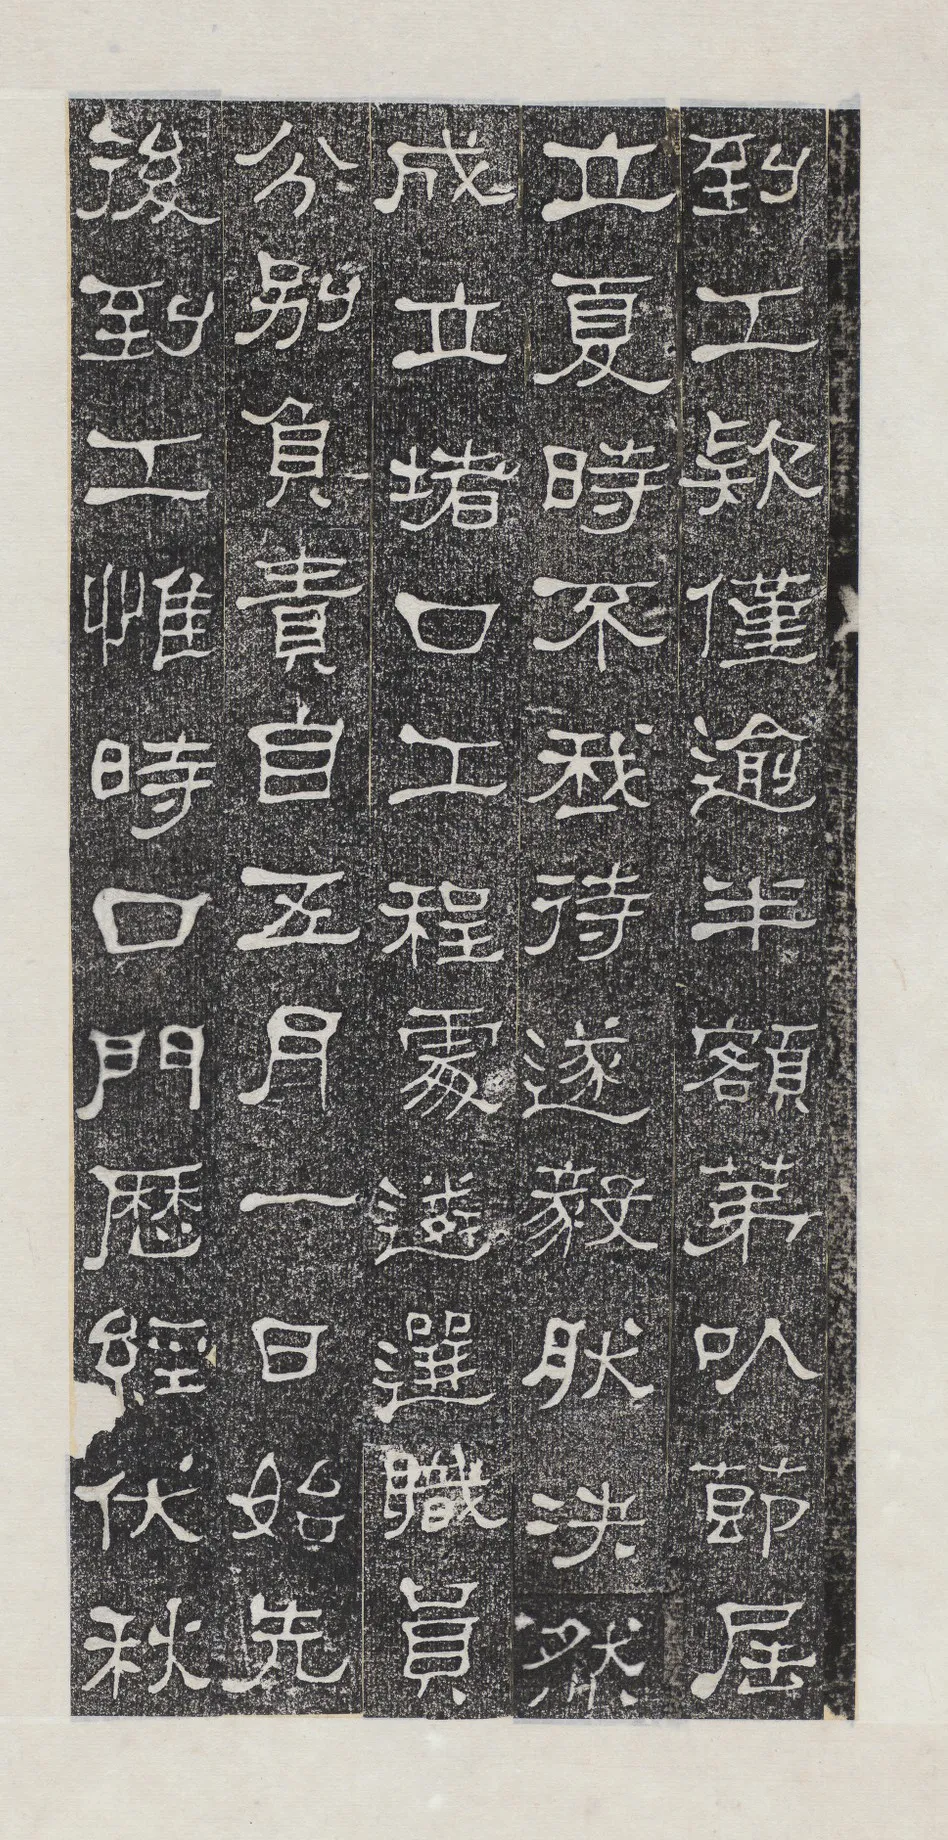 到工款僅逾半額第以節屆
立夏時不我待遂毅肰決然
成立堵口工程處遴選職員
分別負責自五月一日始先
後到工惟時口門歷經伏秋